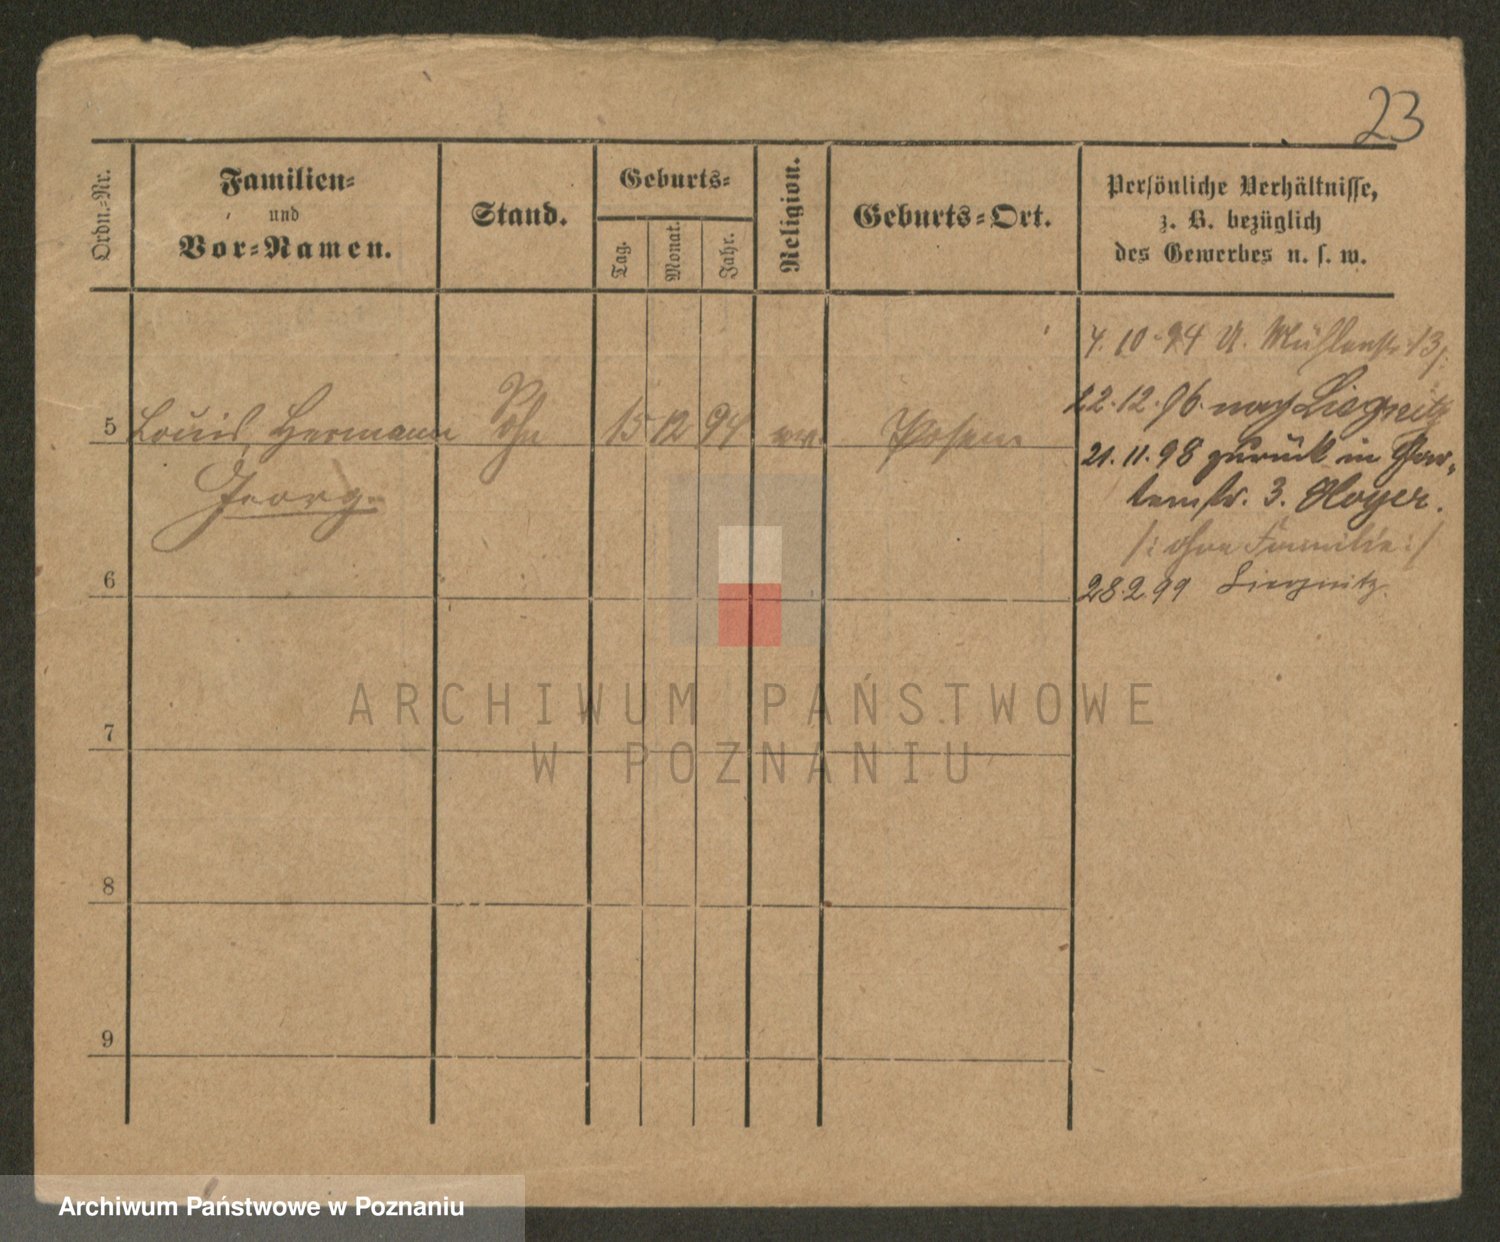 23
Ordn.-Nr.
Familien-
und
Vor-Namen.
Stand.
Geburts-
Tag.
Monat.
Jahr.
Religion.
Geburts-Ort.
Persönliche Verhältnisse,
z. B. bezüglich
des Gewerbes u. s. w.
5 Louis, Hermann Sohn 15 12 94 ev. Posen
Georg.
6
7
8
9
4. 10. 94 U. Mühlenstr. 13
22. 12. 96. nach Liegnitz
21. 11. 98 zurück in Gar-
tenstr. 3. Hoyer.
/: ohne Familie :/
28. 2. 99 Liegnitz.
ARCHIWUM PAŃSTWOWE
W POZNANIU
Archiwum Państwowe w Poznaniu